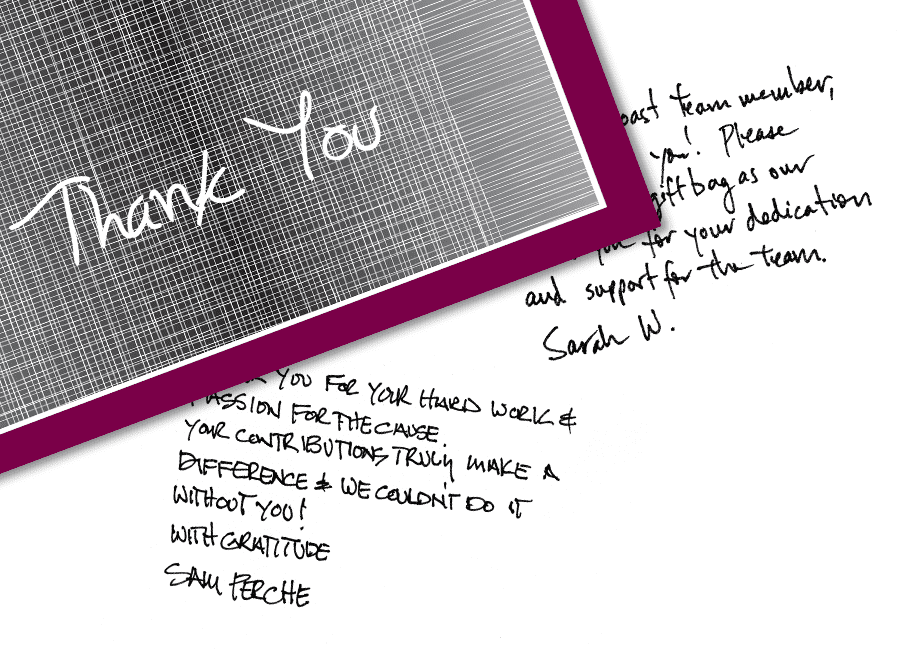 Thank You
team member,
you! Please
gift bag as our
for your dedication
and support for the team.
Sarah W.
YOU FOR YOUR HARD WORK &
PASSION FOR THE CAUSE.
YOUR CONTRIBUTIONS TRULY MAKE A
DIFFERENCE & WE COULDN'T DO IT
WITHOUT YOU!
WITH GRATITUDE
SAM FERCHE